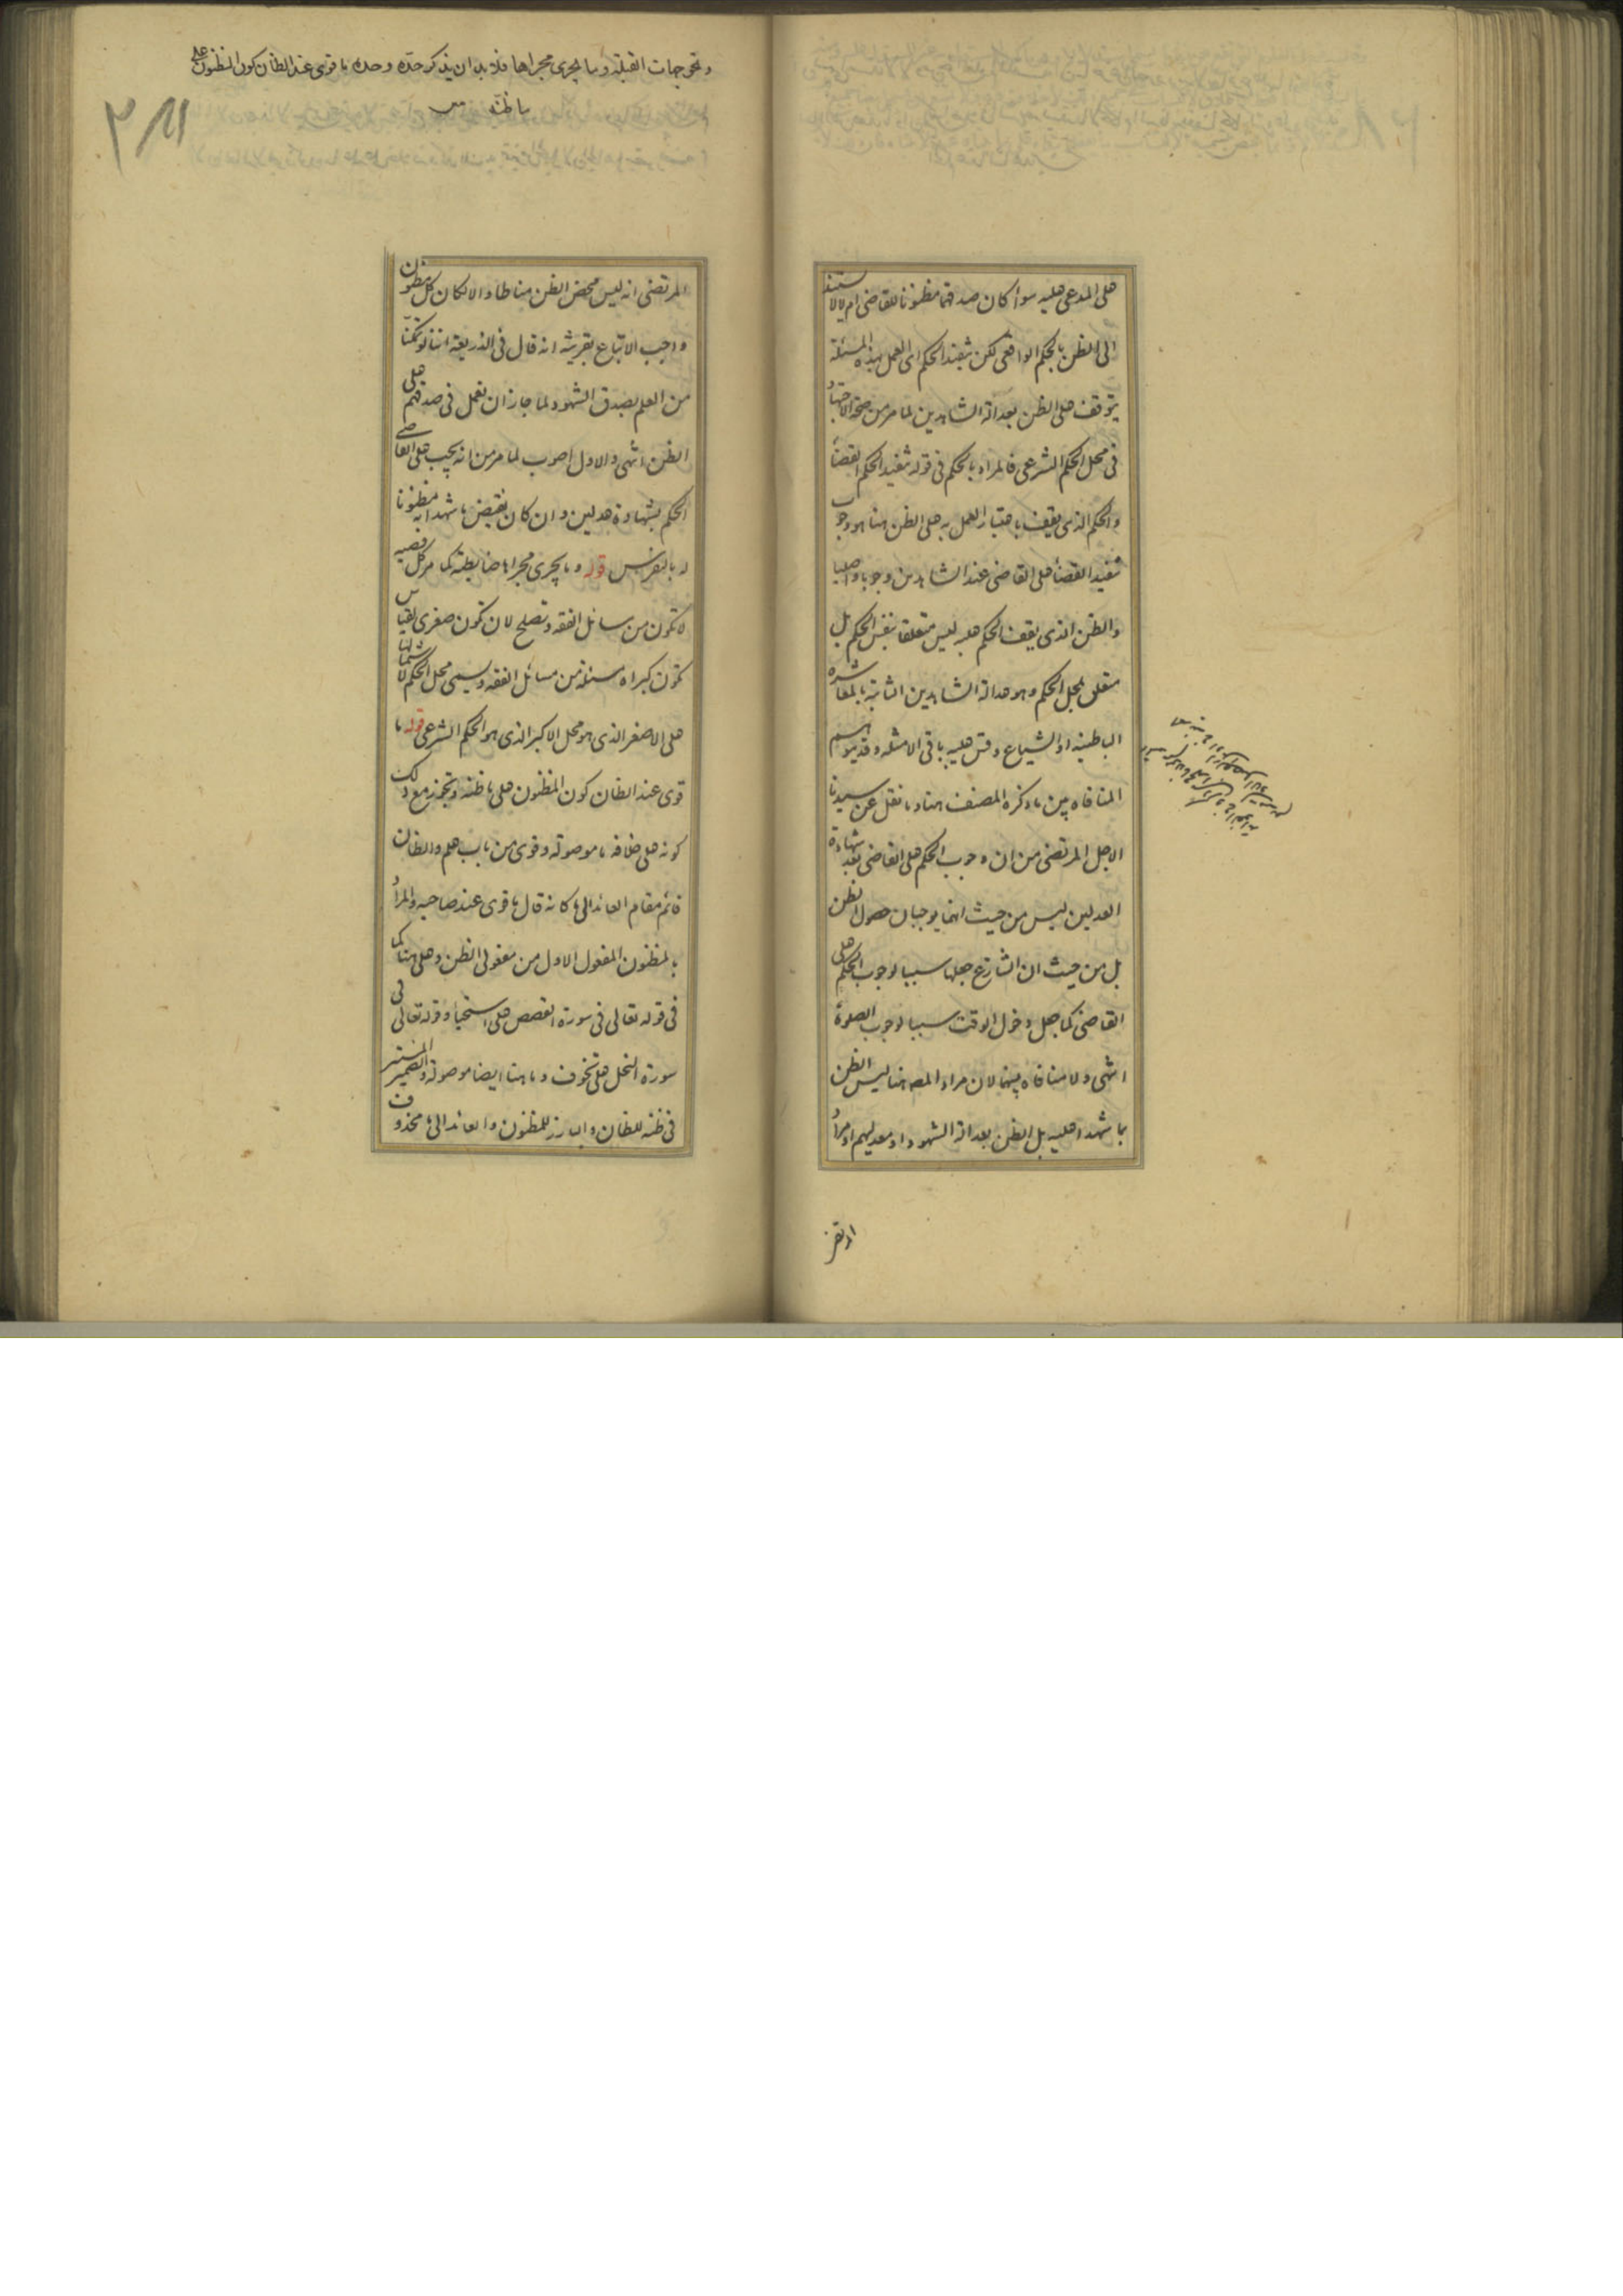 على المدعى عليه سواء كان صدقهما مظنونا للقاضى ام لا لا يستند
الى الظن بالحكم الواقعى لكن تنفيذ الحكم اى العمل بهذه المسئلة
يتوقف على الظن بعدالة الشاهدين لما مر من صحة الاجتهاد
فى محل الحكم الشرعى فالمراد بالحكم فى قوله تنفيذ الحكم القضاء
والحكم الذى يقف باعتبار العمل به على الظن هنا هو وجوب
تنفيذ القضاء على القاضى عند الشاهدين وجوبا واصليا
والظن الذى يقف الحكم عليه ليس متعلقا بنفس الحكم بل
متعلق بمحل الحكم وهو عدالة الشاهدين الثابتة بالمعاشرة
الباطنية او الشياع وقس عليه باقى الامثلة وقد يتوهم
المنافاة بين ما ذكره المصنف هنا وما نقل عن سيدنا
الاجل المرتضى من ان وجوب الحكم على القاضى بعد شهادة
العدلين ليس من حيث انهما يوجبان حصول الظن
بل من حيث ان الشارع جعلها سببا لوجوب الحكم على
القاضى كما جعل دخول الوقت سببا لوجوب الصلوة
انتهى ولا منافاة بينهما لان مراد المصـ هنا ليس الظن
بما شهدا عليه بل الظن بعدالة الشهود او معدليهم او مراد
ونحو جهات القبلة وما يجرى مجراها فلا بد ان يذكر حدّه وحده ما قوى عند الظان كون المظنون على
ما ظنّه
المرتضى انه ليس محض الظن مناطا والا لكان كل مظنون
واجب الاتباع بقرينة انه قال فى الذريعة اننا لو تمكنّا
من العلم بصدق الشهود لما جاز ان نعمل فى صدقهم على
الظن انتهى والاول اصوب لما مر من انه يجب على القاضى
الحكم بشهادة عدلين وان كان نقيض ما شهدا به مظنونا
له بالتفرس قوله وما يجرى مجراها ضابطته كما مر كل قضيه
لا تكون من مسائل الفقه وتصلح لان تكون صغرى لقياس
تكون كبراه مسئلة من مسائل الفقه وسمى محل الحكم لاشتمالها
على الاصغر الذى هو محل الاكبر الذى هو الحكم الشرعى قوله ما
قوى عند الظان كون المظنون على ما ظنه وتجوز مع ذلك
كونه على خلافه ما موصولة وقوى من باب علم والظان
قائم مقام العائد الى ما كانه قال ما قوى عند صاحبه والمراد
بالمظنون المفعول الاول من مفعولى الظن وعلى هنا كما
فى قوله تعالى فى سورة القصص على استحياء وقوله تعالى فى
سورة النحل على تخوف وما هنا ايضا موصولة والضمير المستتر
فى ظنه للظان والبارز للمظنون والعائد الى ما محذوف